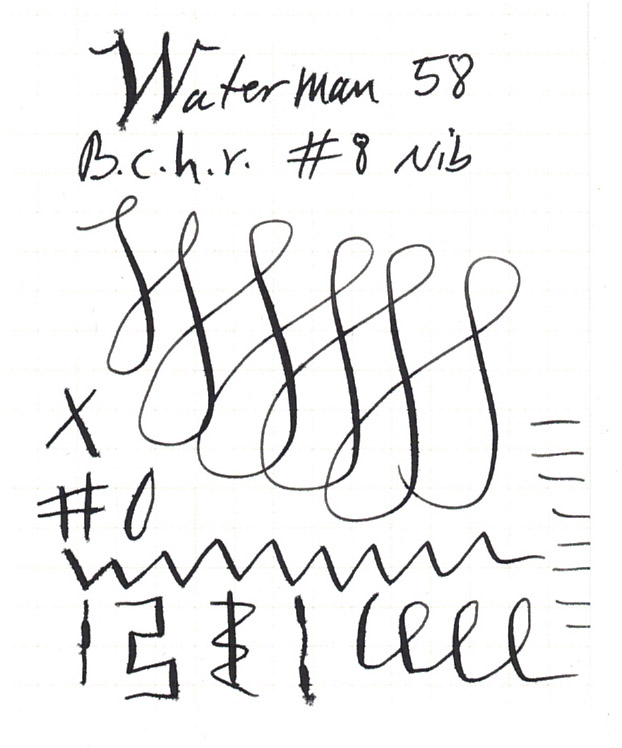 Waterman 58
B.c.h.r. #8 Nib
X
#0